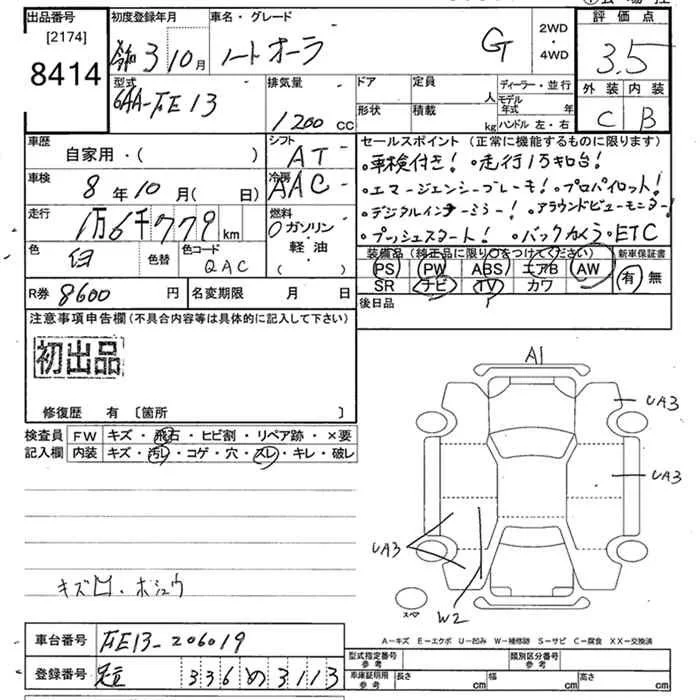 出品番号 [2174] 8414
初度登録年月 令和3年10月
車名・グレード ノートオーラ G
2WD・4WD
評価点 3.5
外装 内装
C B
型式 6AA-FE13
排気量 1200 cc
ドア 定員 人
形状 積載 kg
ディーラー・並行
モデル年式 年
ハンドル 左・右
車歴 自家用・( )
シフト AT
セールスポイント (正常に機能するものに限ります)
・車検付き! ・走行1万キロ台!
・エマージェンシーブレーキ! ・プロパイロット!
・デジタルインナーミラー! ・アラウンドビューモニター!
・プッシュスタート! ・バックカメラ・ETC
車検 8年10月(日)
冷房 AAC
走行 1万6千779km
燃料 ガソリン 軽・油 ( )
色 白 色替 色コード QAC
装備品 (純正品に限り○をつけてください) 新車保証書
PS PW ABS エアB AW 有・無
SR ナビ TV カワ
R券 8600円 名変期限 月 日
後日品
注意事項申告欄 (不具合内容等は具体的に記入して下さい)
初出品
修復歴 有 〔箇所 〕
検査員記入欄
FW キズ・飛石・ヒビ割・リペア跡・×要
内装 キズ・汚レ・コゲ・穴・スレ・キレ・破レ
A1
UA3
UA3
UA3
W2
スペア
キズ凹・ホシュウ
A-キズ E-エクボ U-凹み W-補修跡 S-サビ C-腐食 XX-交換済
車台番号 FE13-206019
登録番号 336 め 3113
型式指定番号 参考 類別区分番号 参考
車庫証明用参考 長さ cm 幅 cm 高さ cm